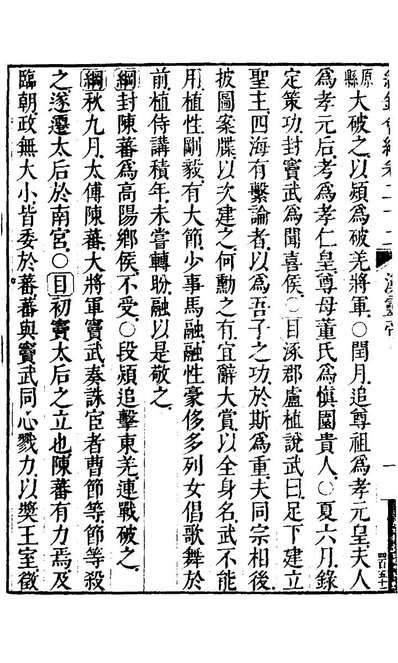 原縣大破之以熲爲破羌將軍○閏月追尊祖爲孝元皇夫人
爲孝元后考爲孝仁皇尊母董氏爲愼園貴人○夏六月錄
定策功封竇武爲聞喜侯○目涿郡盧植說武曰足下建立
聖主四海有繫論者以爲吾子之功於斯爲重夫同宗相後
披圖案牒以次建之何勳之有宜辭大賞以全身名武不能
用植性剛毅有大節少事馬融融性豪侈多列女倡歌舞於
前植侍講積年未嘗轉盼融以是敬之
綱封陳蕃爲高陽鄉侯不受○段熲追擊東羌連戰破之
綱秋九月太傅陳蕃大將軍竇武奏誅宦者曹節等節等殺
之遂遷太后於南宮○目初竇太后之立也陳蕃有力焉及
臨朝政無大小皆委於蕃蕃與竇武同心戮力以奬王室徵
漢靈帝
一